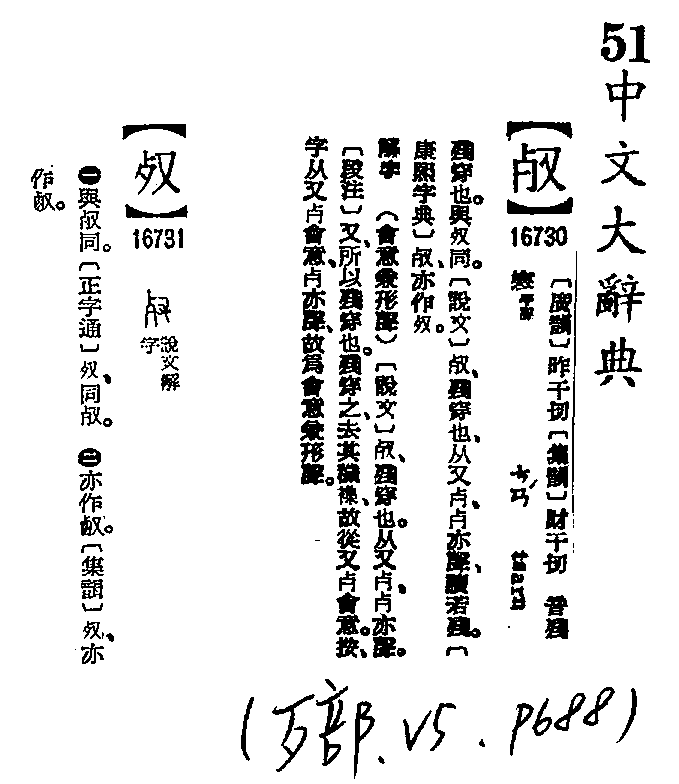 51
中文大辭典
【𣦼】
16730
〔廣韻〕昨干切〔集韻〕財干切 音殘
寒平聲 ㄘㄢˊ tsarn
殘穿也。與𣦻同。〔說文〕𣦼、殘穿也、从又𣦵、𣦵亦聲、讀若殘。〔
康熙字典〕𣦼、亦作𣦻。
解字 （會意兼形聲）〔說文〕𣦼、殘穿也。从又𣦵、𣦵亦聲。
〔段注〕又、所以殘穿也。殘穿之去其穢、故從又𣦵會意。按、
字从又𣦵會意、𣦵亦聲、故爲會意兼形聲。
【𣦻】
16731
𣦼 說文解字
㊀與𣦼同。〔正字通〕𣦻、同𣦼。㊁亦作㕡。〔集韻〕𣦻、亦
作㕡。
(歹部. V5. P688)